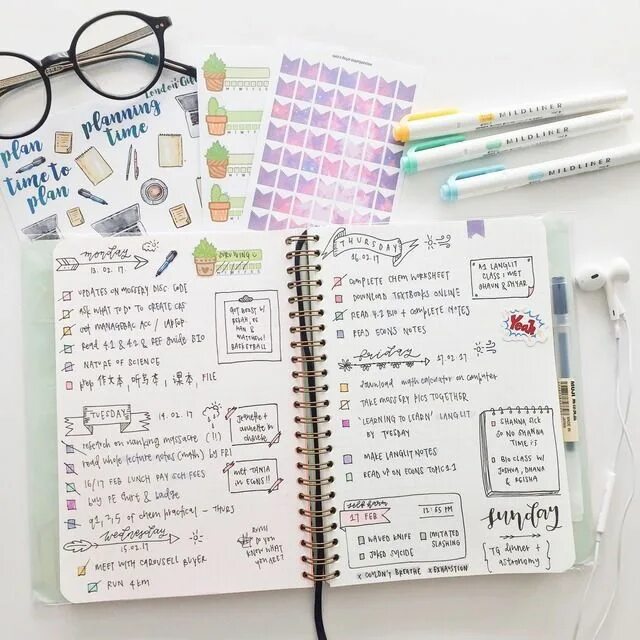 London Girl
plan
time to
plan
planning
time
MILDLINER
MILDLINER
MILDLINER
monday
13.02.17
UPDATES ON MOFFERY DISC CODE
ASK WHAT TO DO TO CREATE CAS
GOT MANAGEBAC ACC / LAPTOP
READ 4.1 & 4.2 & REF GUIDE BIO
NATURE OF SCIENCE
作文本, 听写本, 课本, FILE
MATTHEW!
BASKETBALL
TUESDAY
14.02.17
RESEARCH ON NANKING MASSACRE (!!)
READ WHOLE LECTURE NOTES (MATH) BY FRI
16/17 FEB LUNCH PAY SCH FEES
BUY PE SHIRT & BADGE
Q1,2,5 OF CHEM PRACTICAL - THURS
MEET TANIA
IN ECONS!!
wednesday
15.02.17
MEET WITH CAROUSELL BUYER
RUN 4KM
DO YOU
KNOW WHAT
YOU ARE?
THURSDAY
16.02.17
COMPLETE CHEM WORKSHEET
DOWNLOAD TEXTBOOKS ONLINE
READ 4.2 BIO + COMPLETE NOTES
READ ECONS NOTES
A1 LANGLIT
CLASS I MET
DHAUN & SHYAR
Yeah
friday
17.02.17
DOWNLOAD MATH CALCULATOR ON COMPUTER
TAKE MOSSERY PICS TOGETHER
'LEARNING TO LEARN' LANGLIT
BY TUESDAY
MAKE LANGLIT NOTES
READ UP ON ECONS TOPIC 1.1
SHANNA SICK
SO NO SHANNA
TIME :(
BIO CLASS W/
JOSHUA, DHANA &
KEISHA
17 FEB
12:55 PM
WAVED KNIFE
IMITATED
SLASHING
JOKED SUICIDE
x COULDN'T BREATHE x EXHAUSTION
sunday
TG DINNER +
ASTRONOMY